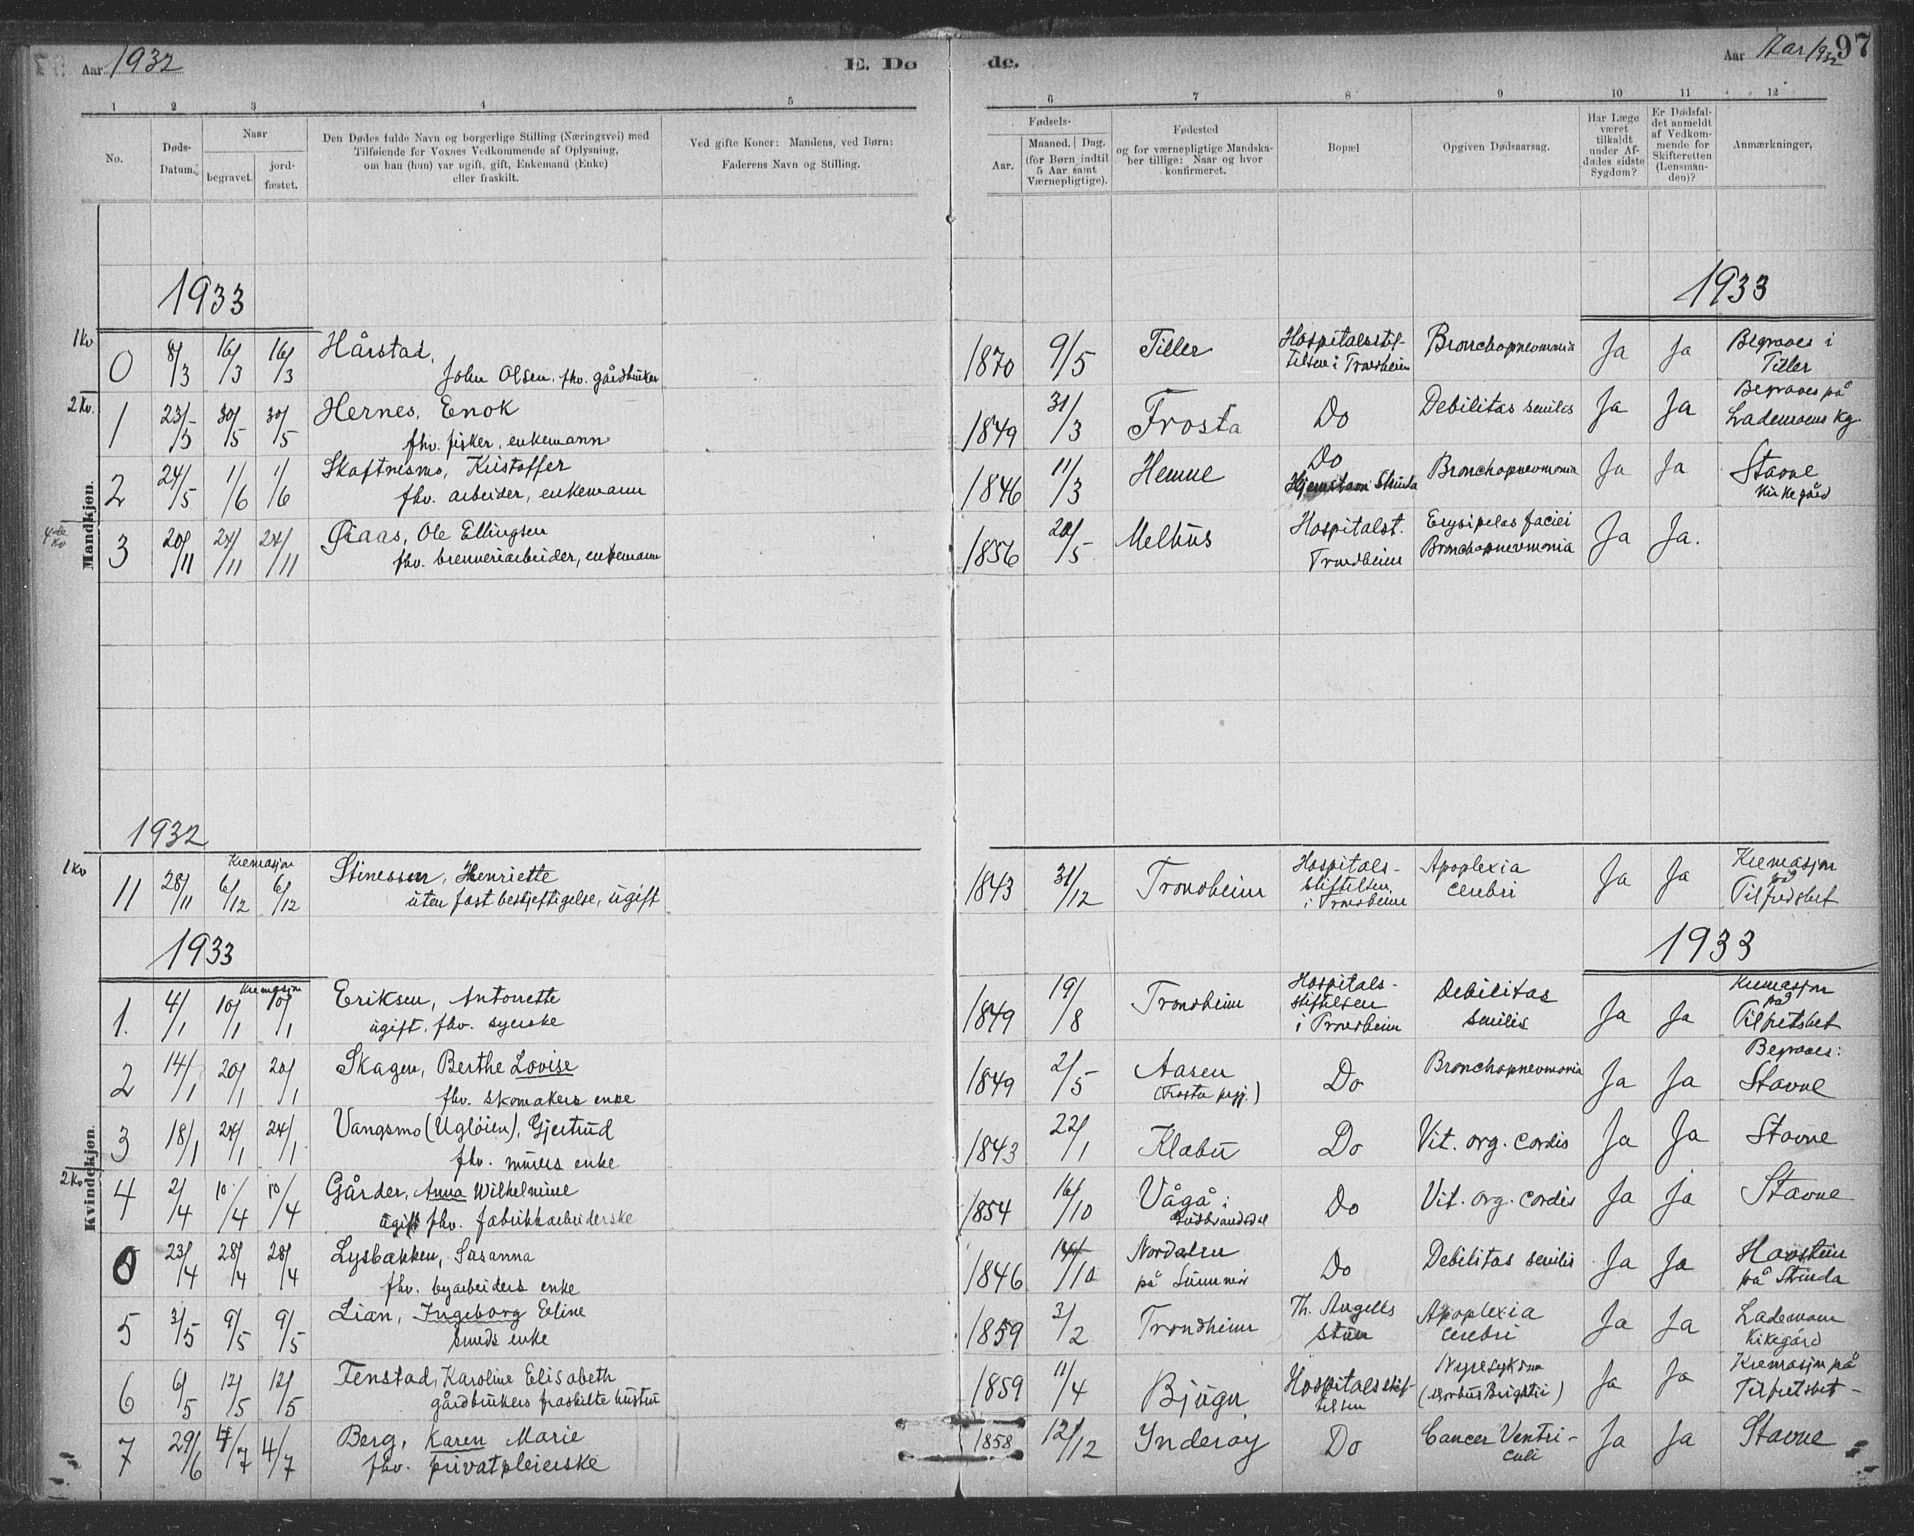 Aar 1932 E. Dø de. Aar Aar 1932 97
1 2 3 4 5 6 7 8 9 10 11 12
No.
Døds-Datum.
Naar
begravet.
jord-fæstet.
Den Dødes fulde Navn og borgerlige Stilling (Næringsvei) med
Tilføiende for Voxnes Vedkommende af Oplysning,
om han (hun) var ugift, gift, Enkemand (Enke)
eller fraskilt.
Ved gifte Koner: Mandens, ved Børn:
Faderens Navn og Stilling.
Fødsels-
Aar.
Maaned. Dag.
(for Børn indtil
5 Aar samt
Værnepligtige).
Fødested
og for værnepligtige Mandska-
ber tillige: Naar og hvor
konfirmeret.
Bopæl
Opgiven Dødsaarsag.
Har Læge
været
tilkaldt
under Af-
dødes sidste
Sygdom?
Er Dødsfal-
det anmeldt
af Vedkom-
mende for
Skifteretten
(Lensman-
den)?
Anmærkninger,
Mandkjøn.
1933 1933
1 Kv
0 8/3 16/3 16/3 Hårstad, 1870 9/5 Tiller Hospitalsstif- Bronchopnevmonia Ja Ja Begraves i
John Olsen, fhv. gårdbruker telsen i Trondheim Tiller
2 Kv.
1 23/5 30/5 30/5 Hernes, Enok 1849 31/3 Frosta Do Debilitas senilis Ja Ja Begraves på
fhv. fisker, enkemann Lademoens Kg.
2 24/5 1/6 1/6 Skaftnesmo, Kristoffer 1846 11/3 Hemne Do Bronchopnevmonia Ja Ja Stavne
fhv. arbeider, enkemann Hjemstavn Strinda Kirkegård
4de Kv
3 20/11 24/11 24/11 Øiaas, Ole Ellingsen 1856 20/5 Melhus Hospitalst. Erysipelas faciei Ja Ja.
fhv. brenneriarbeider, enkemann Trondheim Bronchopnevmonia
1932
Kvindekjøn.
1 Kv
Kremasjon
11 28/11 6/12 6/12 Stinessen, Henriette 1843 31/12 Trondheim Hospitals- Apoplexia Ja Ja Kremasjon
uten fast beskjeftigelse, ugift stiftelsen cerebri på
i Trondheim Tilfredshet
1933 1933
Kremasjon
1. 4/1 10/1 10/1 Eriksen, Antonette 1849 19/8 Trondheim Hospitals- Debilitas Ja Ja Kremasjon
ugift, fhv. syerske stiftelsen senilis på
i Trondheim Tilfretshet
2 14/1 20/1 20/1 Skagen, Berthe Lovise 1849 2/5 Aasen Do Bronchopnevmonia Ja Ja Begraves:
fhv. skomakers enke (Frosta prgj.) Stavne
3 18/1 24/1 24/1 Vangsmo (Ugløien), Gjertrud 1843 22/1 Klæbu Do Vit. org. cordis Ja Ja Stavne
fhv. murers enke
2 Kv
4 2/4 10/4 10/4 Gårder, Anna Wilhelmine 1854 16/10 Vågå i Do Vit. org. cordis Ja ja Stavne
ugift fhv. fabrikkarbeiderske Gudbrandsdal
0 23/4 28/4 28/4 Lysbakken, Susanna 1846 14/10 Nordalen Do Debilitas senilis Ja Ja Havstein
fhv. byarbeiders enke på Sunnmør på Strinda
5 3/5 9/5 9/5 Lian, Ingeborg Eline 1859 3/2 Trondheim Th. Angells Apoplexia Ja Ja Lademoen
smeds enke stue cerebri Kikegård
6 6/5 12/5 12/5 Tenstad, Karoline Elisabeth 1859 11/4 Bjugn Hospitalsstif- Nyresykdom Ja Ja Kremasjon på
gårdbrukers fraskilte hustru telsen (morbus Brigthii) Tilfretshet -
7 29/6 4/7 4/7 Berg, Karen Marie 1858 12/12 Ynderøy Do Cancer Ventri- Ja Ja Stavne
fhv. privatpleierske culi